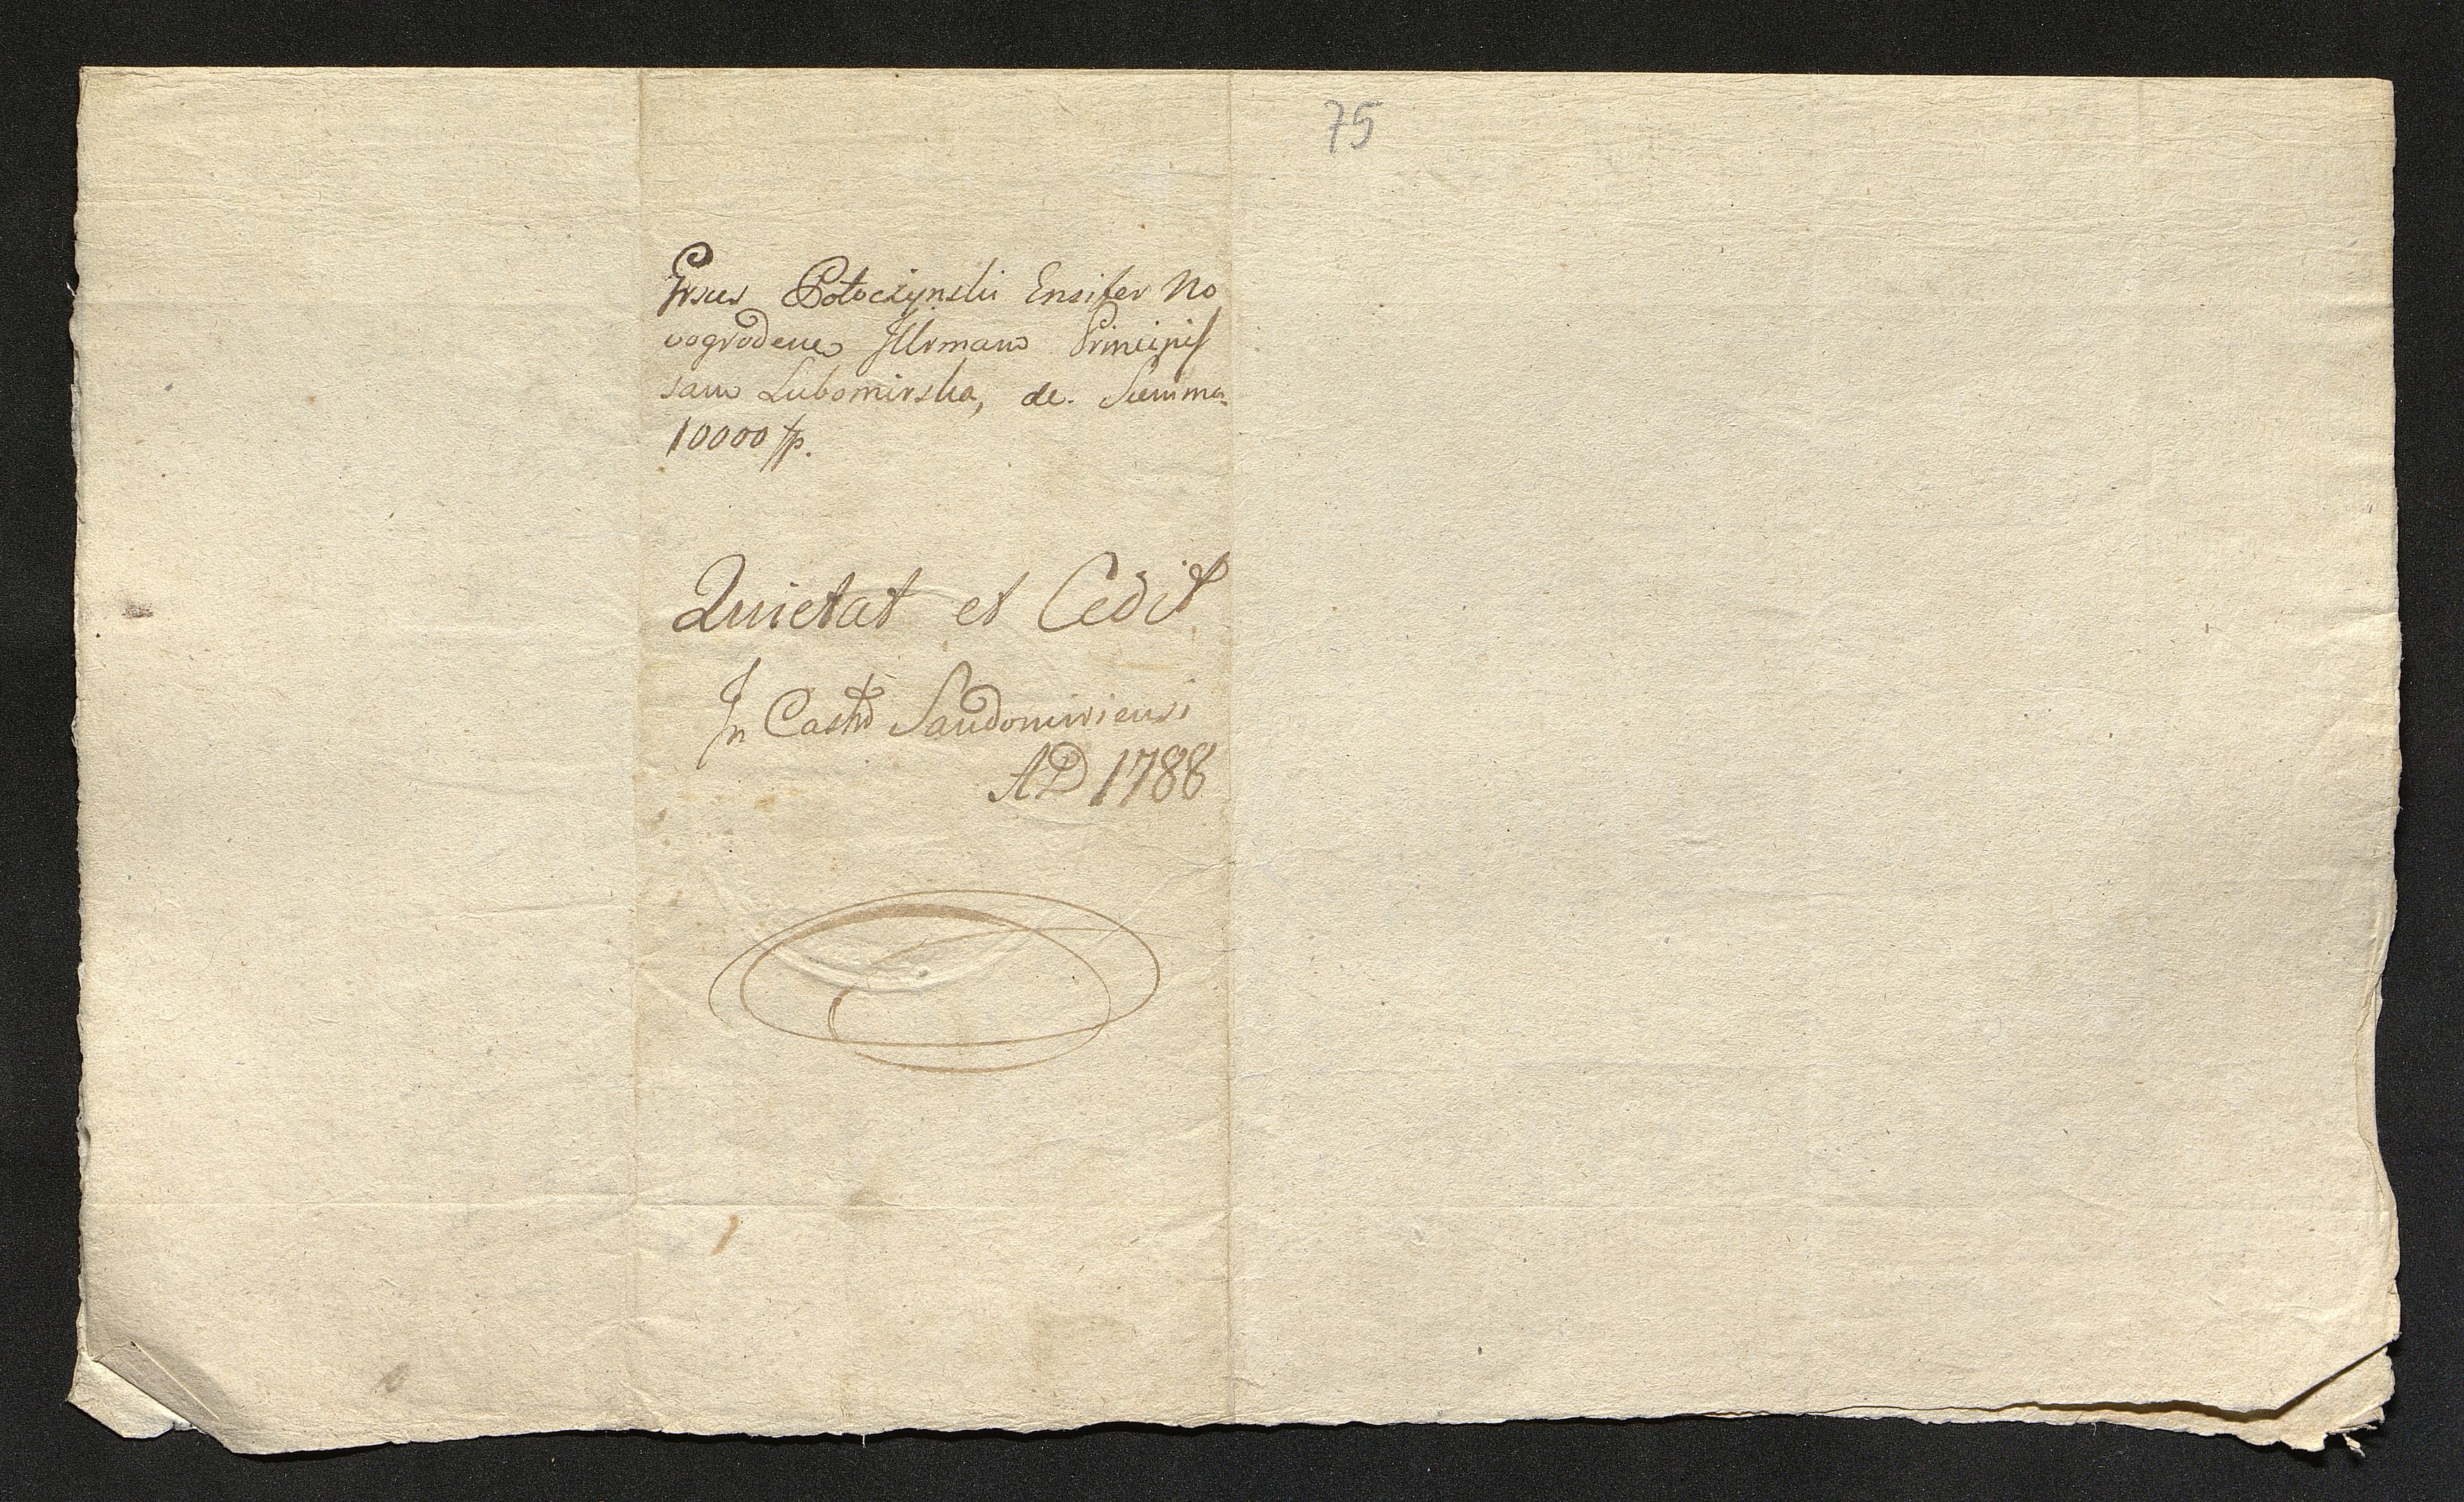 75
Potoczynski Ensifer No
vogroden Illrmam Principis
sam Lubomirska, de Summa
10000 fp.
Quietat et Cedit
In Castro Sandomiriensi
AD 1788